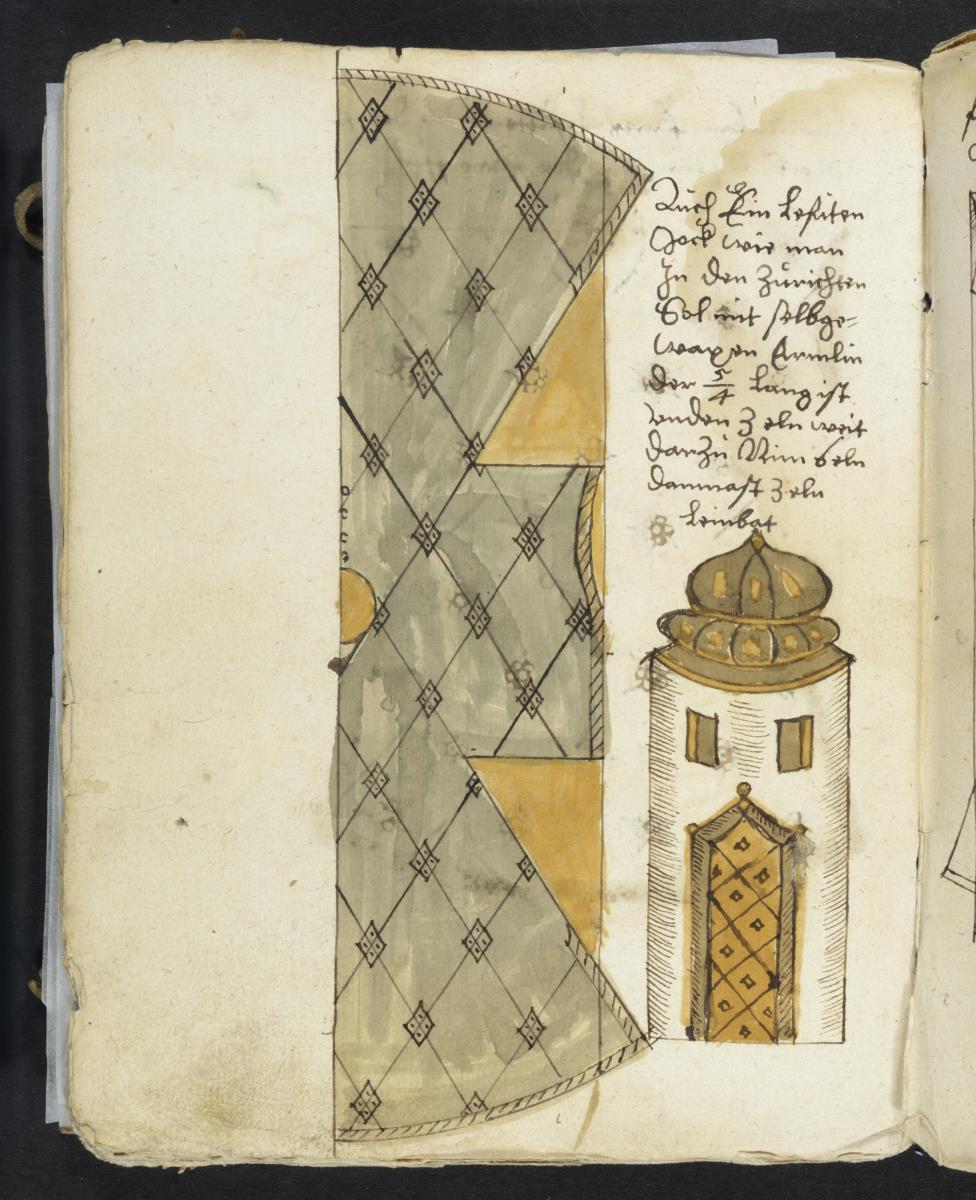 Auch Ein lesuten
Rock wie man
In den Zurichten
Sol mit selbge=
waxen Ermlin
der 5/4 lang ist
unden 3 eln weit
darzu Nim 6 eln
dammast 3 eln
leinbat